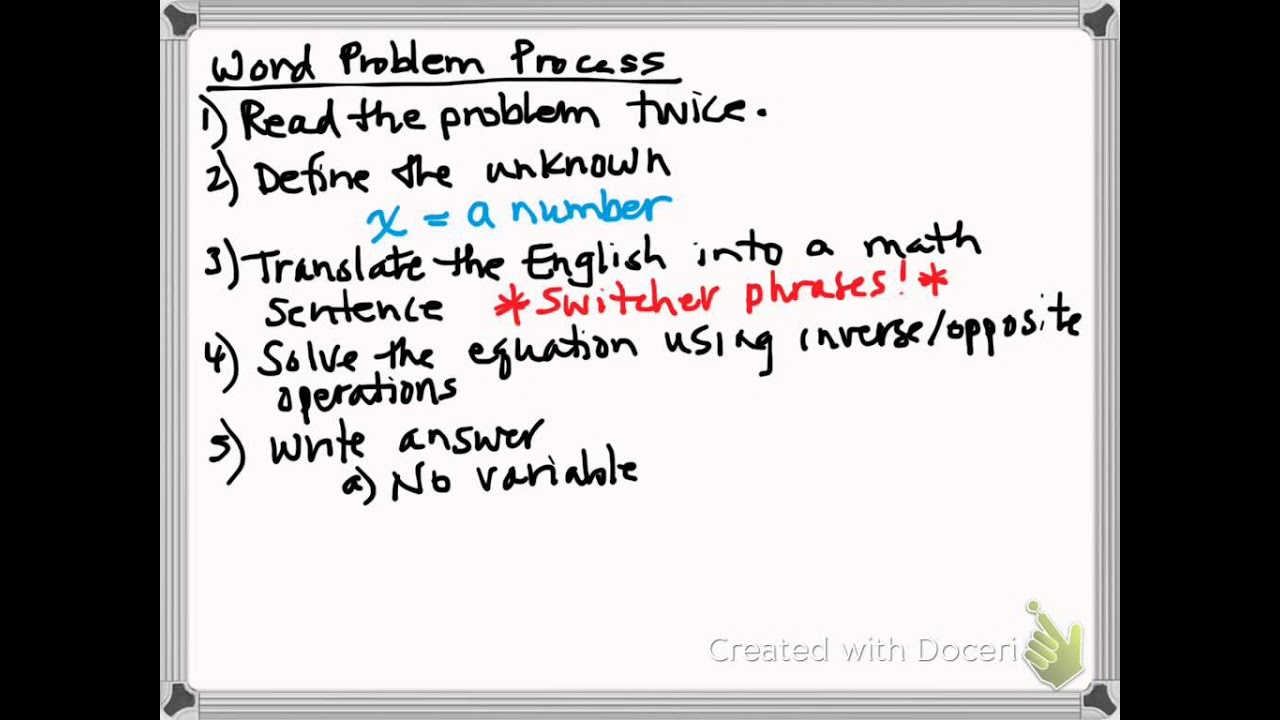 Word Problem Process
1) Read the problem twice.
2) Define the unknown
x = a number
3) Translate the English into a math
sentence *Switcher phrases! *
4) Solve the equation using inverse/opposite
operations
5) Write answer
a) No variable
Created with Doceri